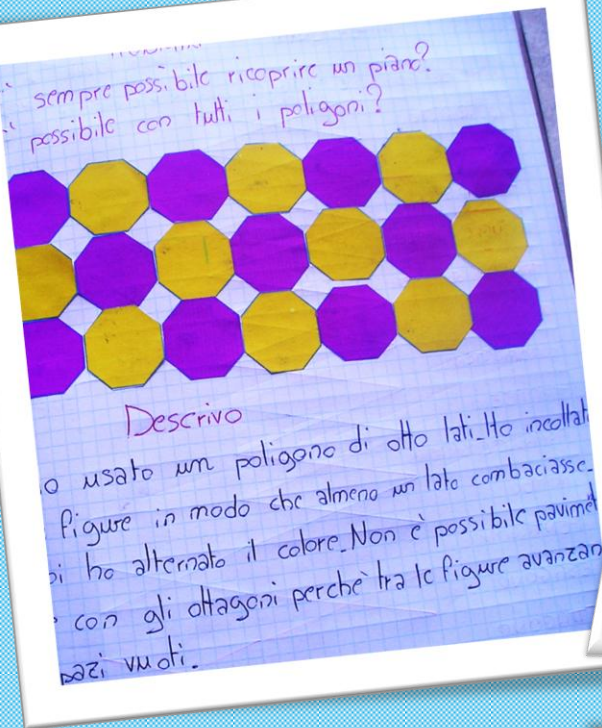 sempre possibile ricoprire un piano?
possibile con tutti i poligoni?
Descrivo
o usato un poligono di otto lati_Ho incollat
figure in modo che almeno un lato combaciasse_
oi ho alternato il colore_Non è possibile pavimet
con gli ottagoni perchè tra le figure avanzan
pazi vuoti_